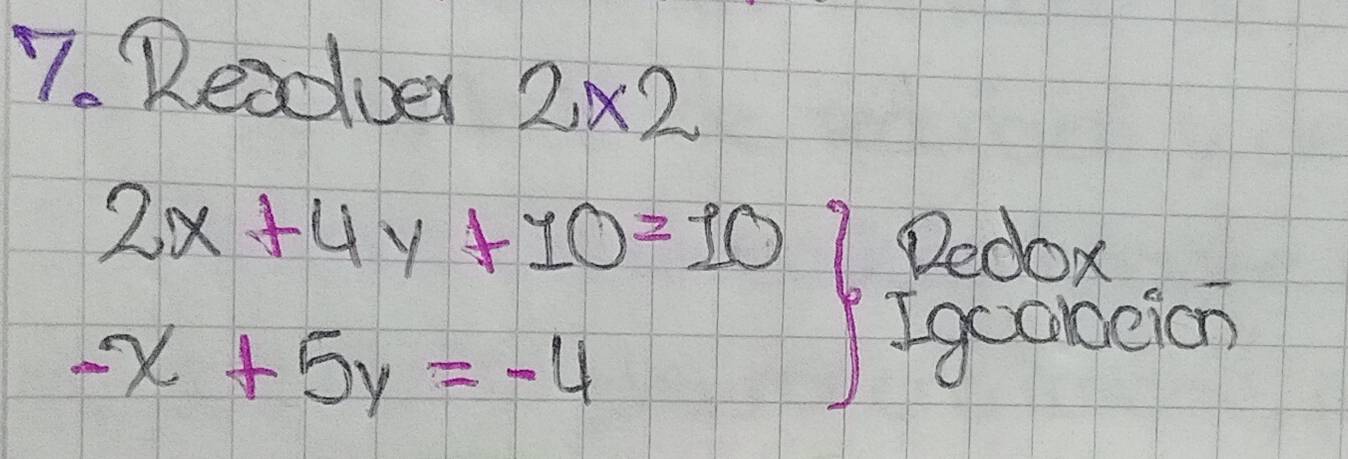 7. Resolver 2x2
2x + 4y + 10 = 10 } Redox
Igualación
-x + 5y = -4